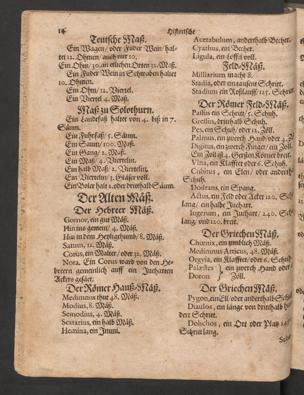 14 Historische
Teutsche Mäß.
Ein Wagen/ oder Fuder Wein/ hal-
tet 12. Ohmen/ auch nur 10.
Ein Ohm/ 30. an etlichen Orten 32. Maß.
Ein Fuder Wein in Schwaben haltet
10. Ohmen.
Ein Ohm/ 12. Viertel.
Ein Viertel 4. Maß.
Maß zu Solothurn.
Ein Landfaß haltet von 4. biß in 7.
Säum.
Ein Fuhrfaß/ 5. Säum.
Ein Saum/ 100. Maß.
Ein Gang/ 2. Maß.
Ein Maß/ 4. Viertelin.
Ein halb Maß/ 2. Viertelin.
Ein Viertelin/ 3. Gläßer voll.
Ein Boler halt 2. oder dritthalb Säum.
Der Alten Mäß.
Der Hebreer Mäß.
Gomor, ein gut Mäß.
Hin ins gemein/ 4. Mäß.
Hin in dem Heyligthumb/ 8. Mäß.
Satum, 12. Mäß.
Corus, ein Malter/ oder 31. Mäß.
Nota. Ein Corus ward von den He-
breern gemeinlich auff ein Jucharten
Ackers gesäet.
Der Römer Hauß-Mäß.
Medimnus thut 48. Mäß.
Modius, 8. Mäß.
Semodius, 4. Mäß.
Sextarius, ein halb Mäß.
Hemina, ein
Acetabulum, anderthalb Becher.
Cyathus, ein Becher.
Ligula, ein löffel voll.
Feld-Mäß.
Milliarium macht 8.
Stadia, oder ein tausent Schritt.
Stadium ein Roßlauff/ 125. Schritt.
Der Römer Feld-Mäß.
Passus ein Schritt/ 5. Schuh.
Gressus, dritthalb Schuh.
Pes, ein Schuh/ oder 12. Zöll.
Palmus, ein zwerch Hand/ oder 4. Zöll.
Digitus, ein zwerch Finger/ ein Zoll.
Ein Zoll ist 4. Gersten Körner breit.
Ulna, ein Klaffter oder 6. Schuh.
Cubitus, ein Elen/ oder anderthalb
Schuh.
Dodrans, ein Spang.
Actus, ein Feld oder Acker 120. Schuh
lang/ ein halbe Juchart.
Iugerum, ein Juchart/ 240. Schuh
lang, und 120. breit.
Der Griechen Mäß.
Choenix, ein Mäß.
Medimnus Atticus, 48. Mäß.
Orgyia, ein Klaffter/ oder 6. Schuh
Palæstes } ein zwerch Hand/ oder
Doron } Zöll.
Der Griechen Mäß.
Pygon, ein Ell/ oder anderthalb Schuh
Diaulos, ein länge von dritthalb hundert
der Schritt.
Dolichos, ein Ort oder Platz
Schritt lang.